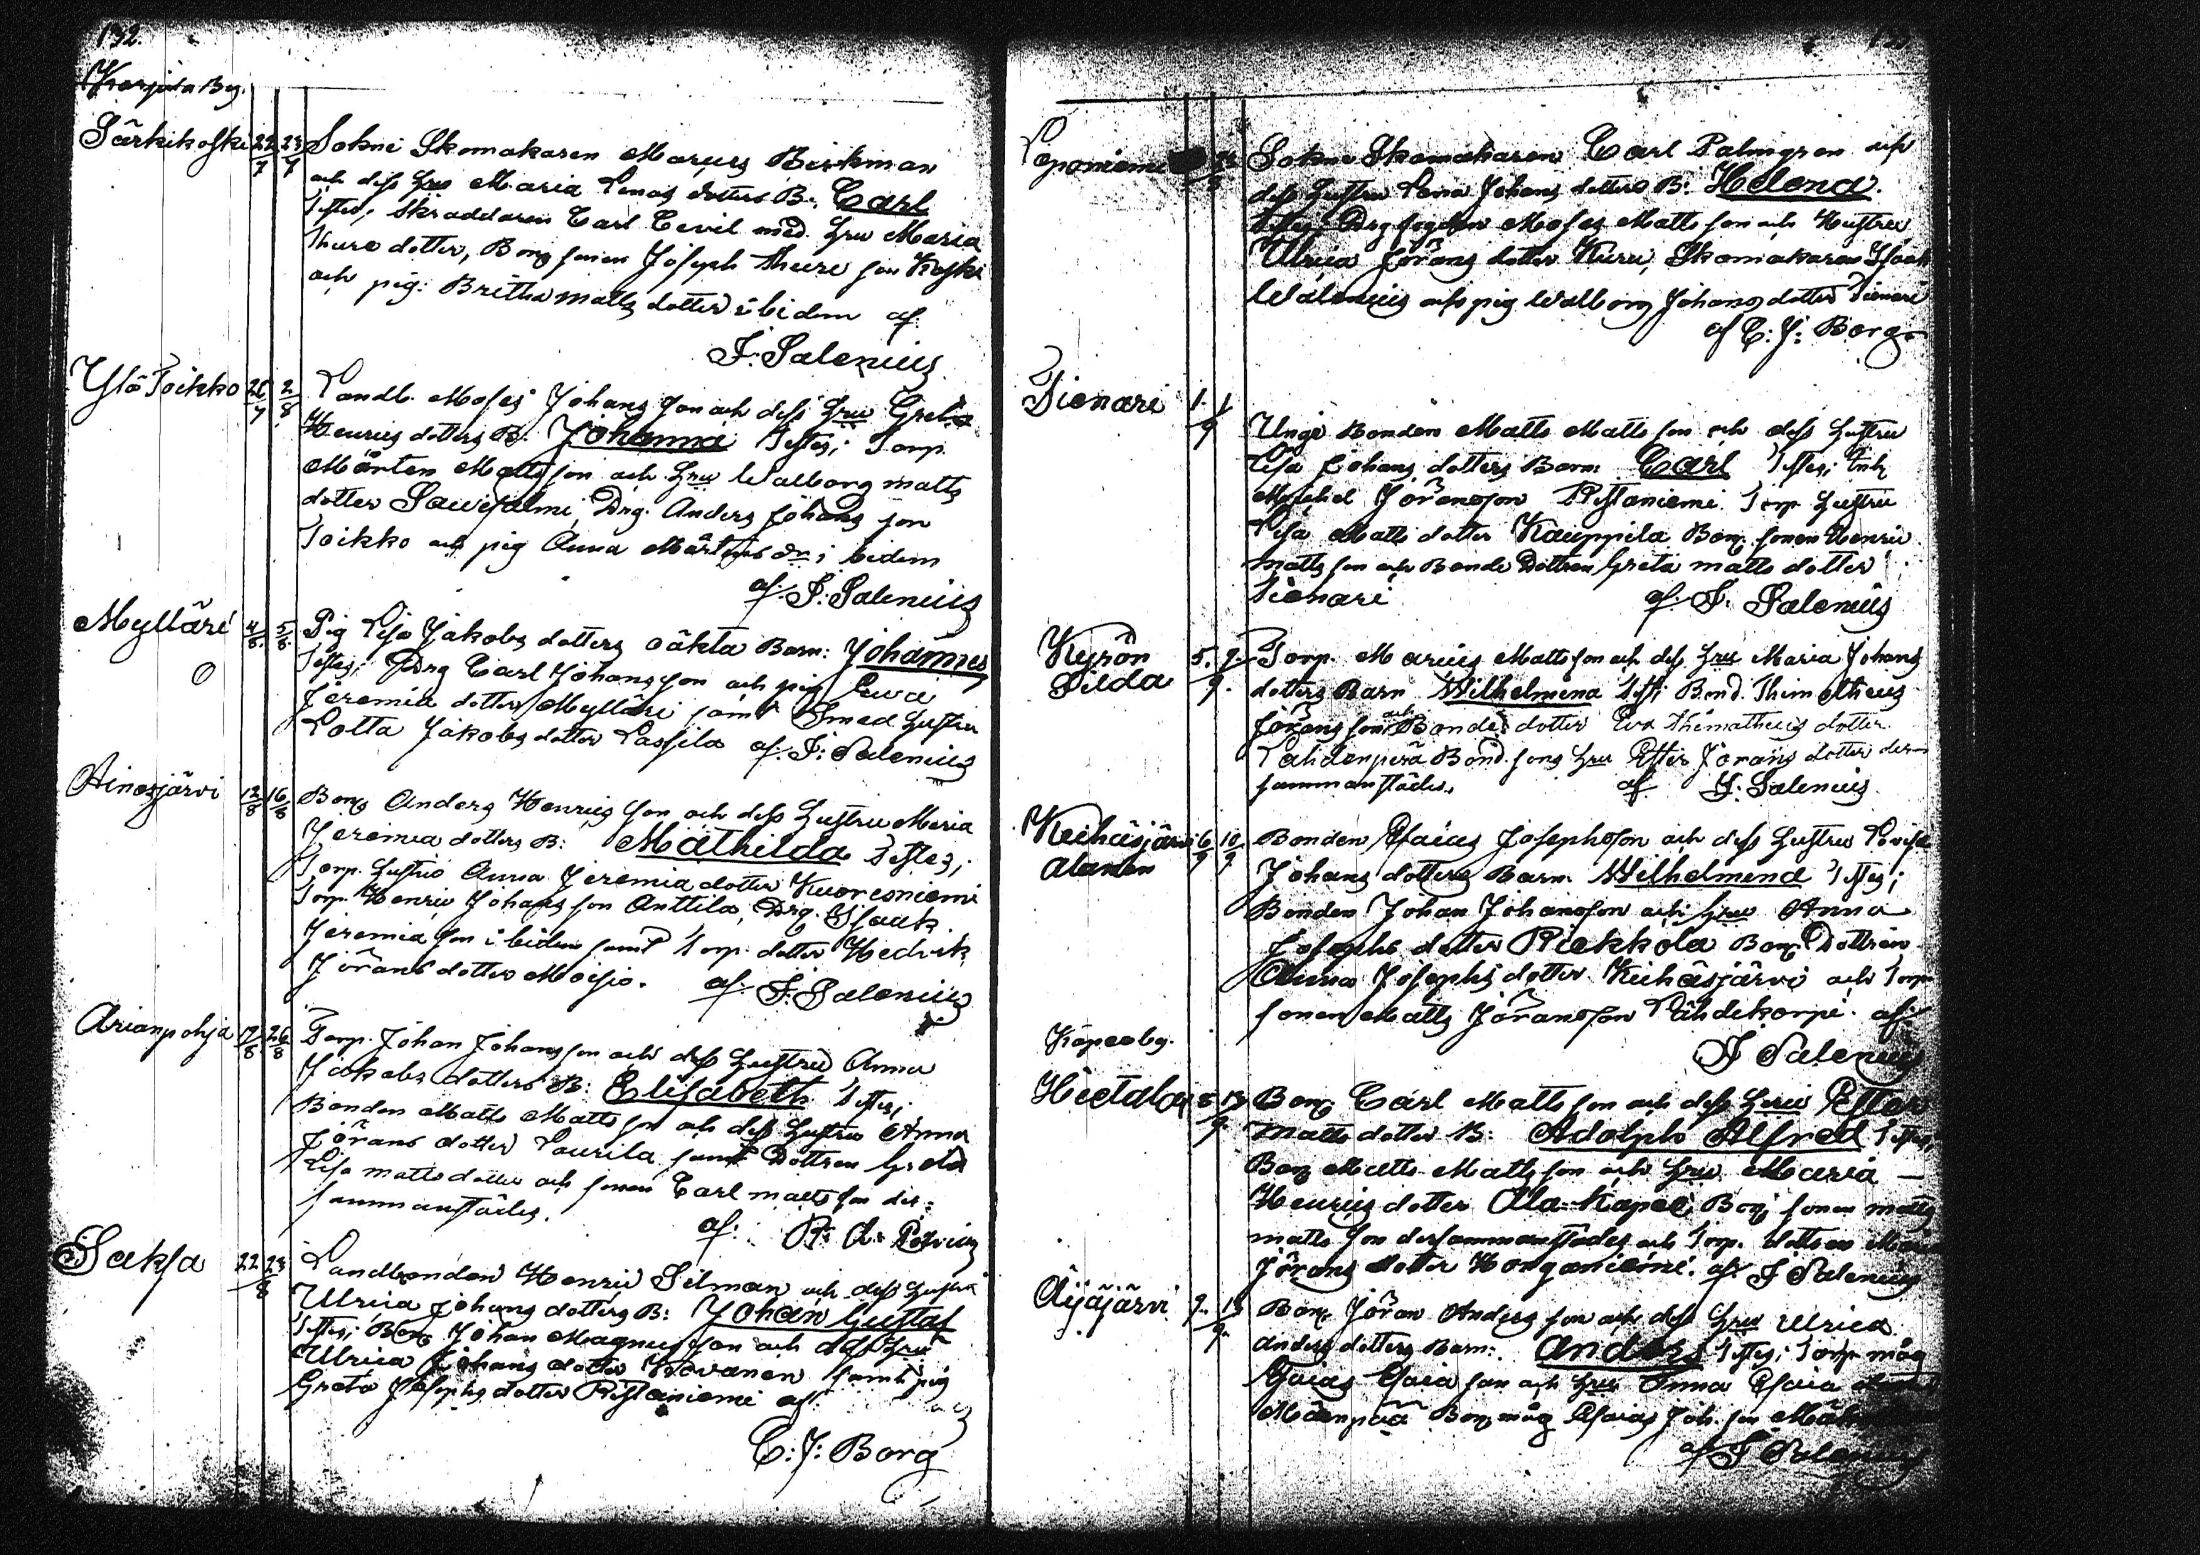 132.
Karjala By.
Särkikoski 22/7 23/7 Sokne Skomakaren Marcus Birkman
och dess Hru Maria Lenas dotters B: Carl
Testes; Skräddaren Carl Cevil med Hru Maria
thure dotter, Bong sonen Joseph thure son Koski
och pig: Britha matts dotter ibidem af
F: Salenius
Ylö Toikko 26/7 2/8 Landb. Moses Johans son och dess Hru Greta
Henrics dotters B. Johanna Testes; Torp.
Mårten Matts son och Hru Walborg matts
dotter Sawijalmi, Drg. Anders Johans son
Toikko och pig Anna Mårtens dr ibidem
af. F: Salenius
Mylläri 4/8 5/8 Pig Lisa Jakobs dotters oäkta Barn: Johannes
Testes; Drg Carl Johans son och pig Ewa
Jeremiæ dotter Mylläri samt Smed Hustru
Lotta Jakobs dotter Lassila af. F: Salenius
Ainasjärvi 12/8 16/8 Bong Anders Henrics son och dess Hustru Maria
Jeremia dotters B: Mathilda Testes;
Torp. Hustru Anna Jeremia dotter Kuoresniemi
Torp. Henric Johans son Anttila, Drg. Isaak
Jeremia son ibidem samt Torp. dotter Hedvik
Jörans dotter Moisio. af. F: Salenius
Arianpohja 17/8 26/8 Torp. Johan Johans son och dess Hustru Anna
Jakobs dotters B: Elisabeth Testes;
Bonden Matts Matts son och dess Hustru Anna
Jörans dotter Laurila samt Dottren Greta
Lisa matts dotter och sonen Carl matts son der-
sammanstädes.
af:
Saksa 22 23/8 Landbonden Henric Silman och dess Hustru
Ulrica Johans dotters B: Johan Gustaf
Testes; Bong Johan Magnus son och dess Hru
Ulrica Johans dotter Howanen samt pig
Greta Josephs dotter Ristaniemi af.
C: J: Borg
133.
Leponiemi Sokne Skomakaren Carl Palmgren och
dess Hustru Lena Johans dotters B: Helena.
Testes; Moses Matts son och Hustru
Ulrica Jörans dotter Kuru, Skomakaren Isaak
Walenius och pig Walborg Johans dotter Tienari
af C: J: Borg.
Tienari 1. 1/9 Unge Bonden Matts Matts son och dess Hustru
Lisa Johans dotters Barn: Carl Testes; Enk
Michel Jöransson Ristaniemi. Torp Hustru
Lisa Matts dotter Kauppila Bong sonen Henric
matts son och Bonde Dottren Greta matts dotter
Tienari af. F: Salenius
Kyrön
Silda 5. 9/9. Torp. Marcus Matts son och dess Hru Maria Johans
dotters Barn Wilhelmina Test; Bond. Thimotheus
Jörans son och Bonde dotter Eva Thimatheus dotter
Lahdenperä Bond. sons Hru Ester Jörans dotter der-
sammanstädes. af F: Salenius
Keihäsjärvi
Alanen 6/9 10/9 Bonden Esaias Josephsson och dess Hustru Lovisa
Johans dotters Barn. Wilhelmina Testes;
Bonden Johan Johansson och Hru Anna
Josephs dotter Riekkola Bong Dottren
Anna Josephs dotter Keihäsjärvi och Torp
sonen Matts Jöransson Pähdekorpi. af:
F Salenius
Käpee by.
Hietaloa 8 13/9 Bong Carl Matts son och dess Hru Ester
matts dotter B: Adolph Alfred Testes;
Bong Matts Matts son och Hru Maria
Henrics dotter Ala-Kapee; Bong sonen matts
matts son dersammanstädes och Torp. dottren
Jörans dotter Honganiemi. af. F Salenius
Äijäjärvi 9. 13/9. Bong Jöran Anders son och dess Hru Ulrica
Anders dotters Barn: Anders Testes; Torp måg
Esaias Esaia son och Hru Anna Esaia
Mäenpää Bong måg Esaias Joh. son
af F Salenius